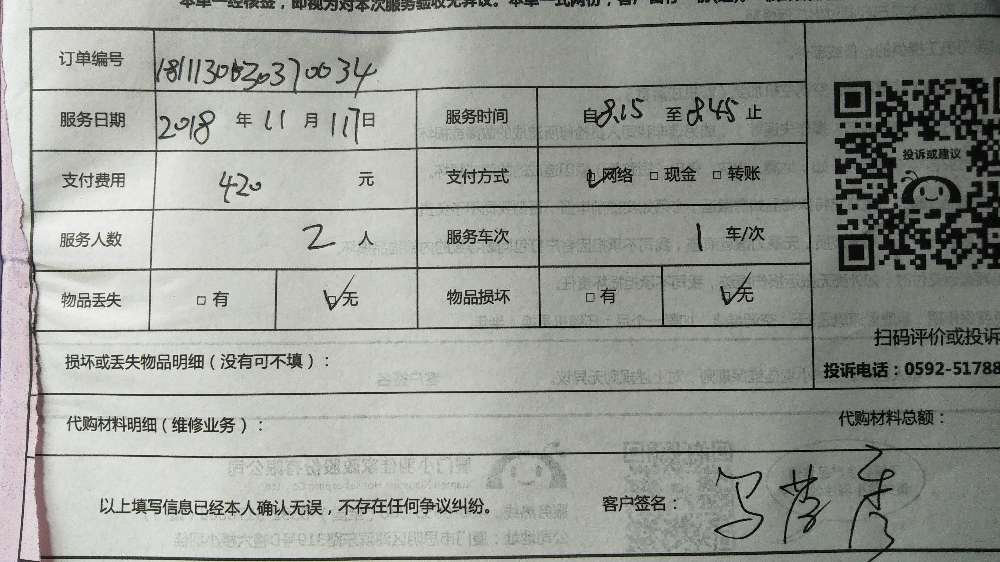 本单一经核签，即视为对本次服务验收无异议。本单一式两份，客户留存一
订单编号 181113003037 0034
服务日期 2018 年 11 月 17日 服务时间 自8.15 至8.45 止
支付费用 420 元 支付方式 ☑网络 □现金 □转账
投诉或建议
服务人数 2 人 服务车次 1 车/次
物品丢失 □有 ☑无 物品损坏 □有 ☑无
扫码评价或投诉
损坏或丢失物品明细（没有可不填）：
投诉电话：0592-51788
代购材料明细（维修业务）： 代购材料总额：
以上填写信息已经本人确认无误，不存在任何争议纠纷。 客户签名：